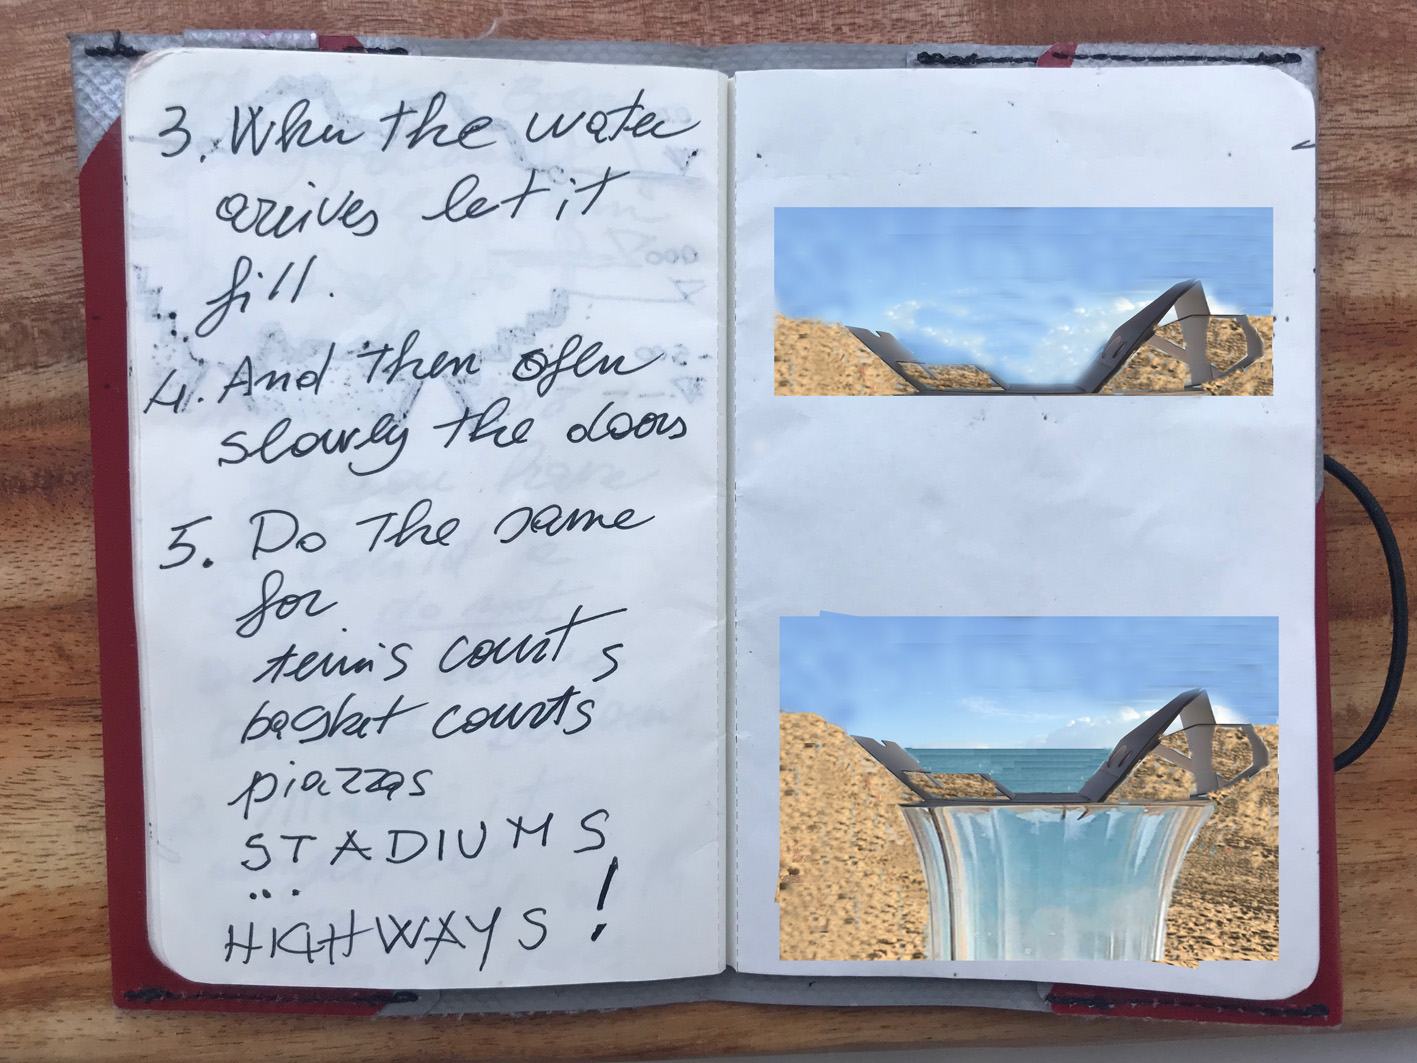 3. When the water
arrives let it
fill.
4. And then open
slowly the doors
5. Do the same
for
tennis courts
basket courts
piazzas
STADIUMS
...
HIGHWAYS !